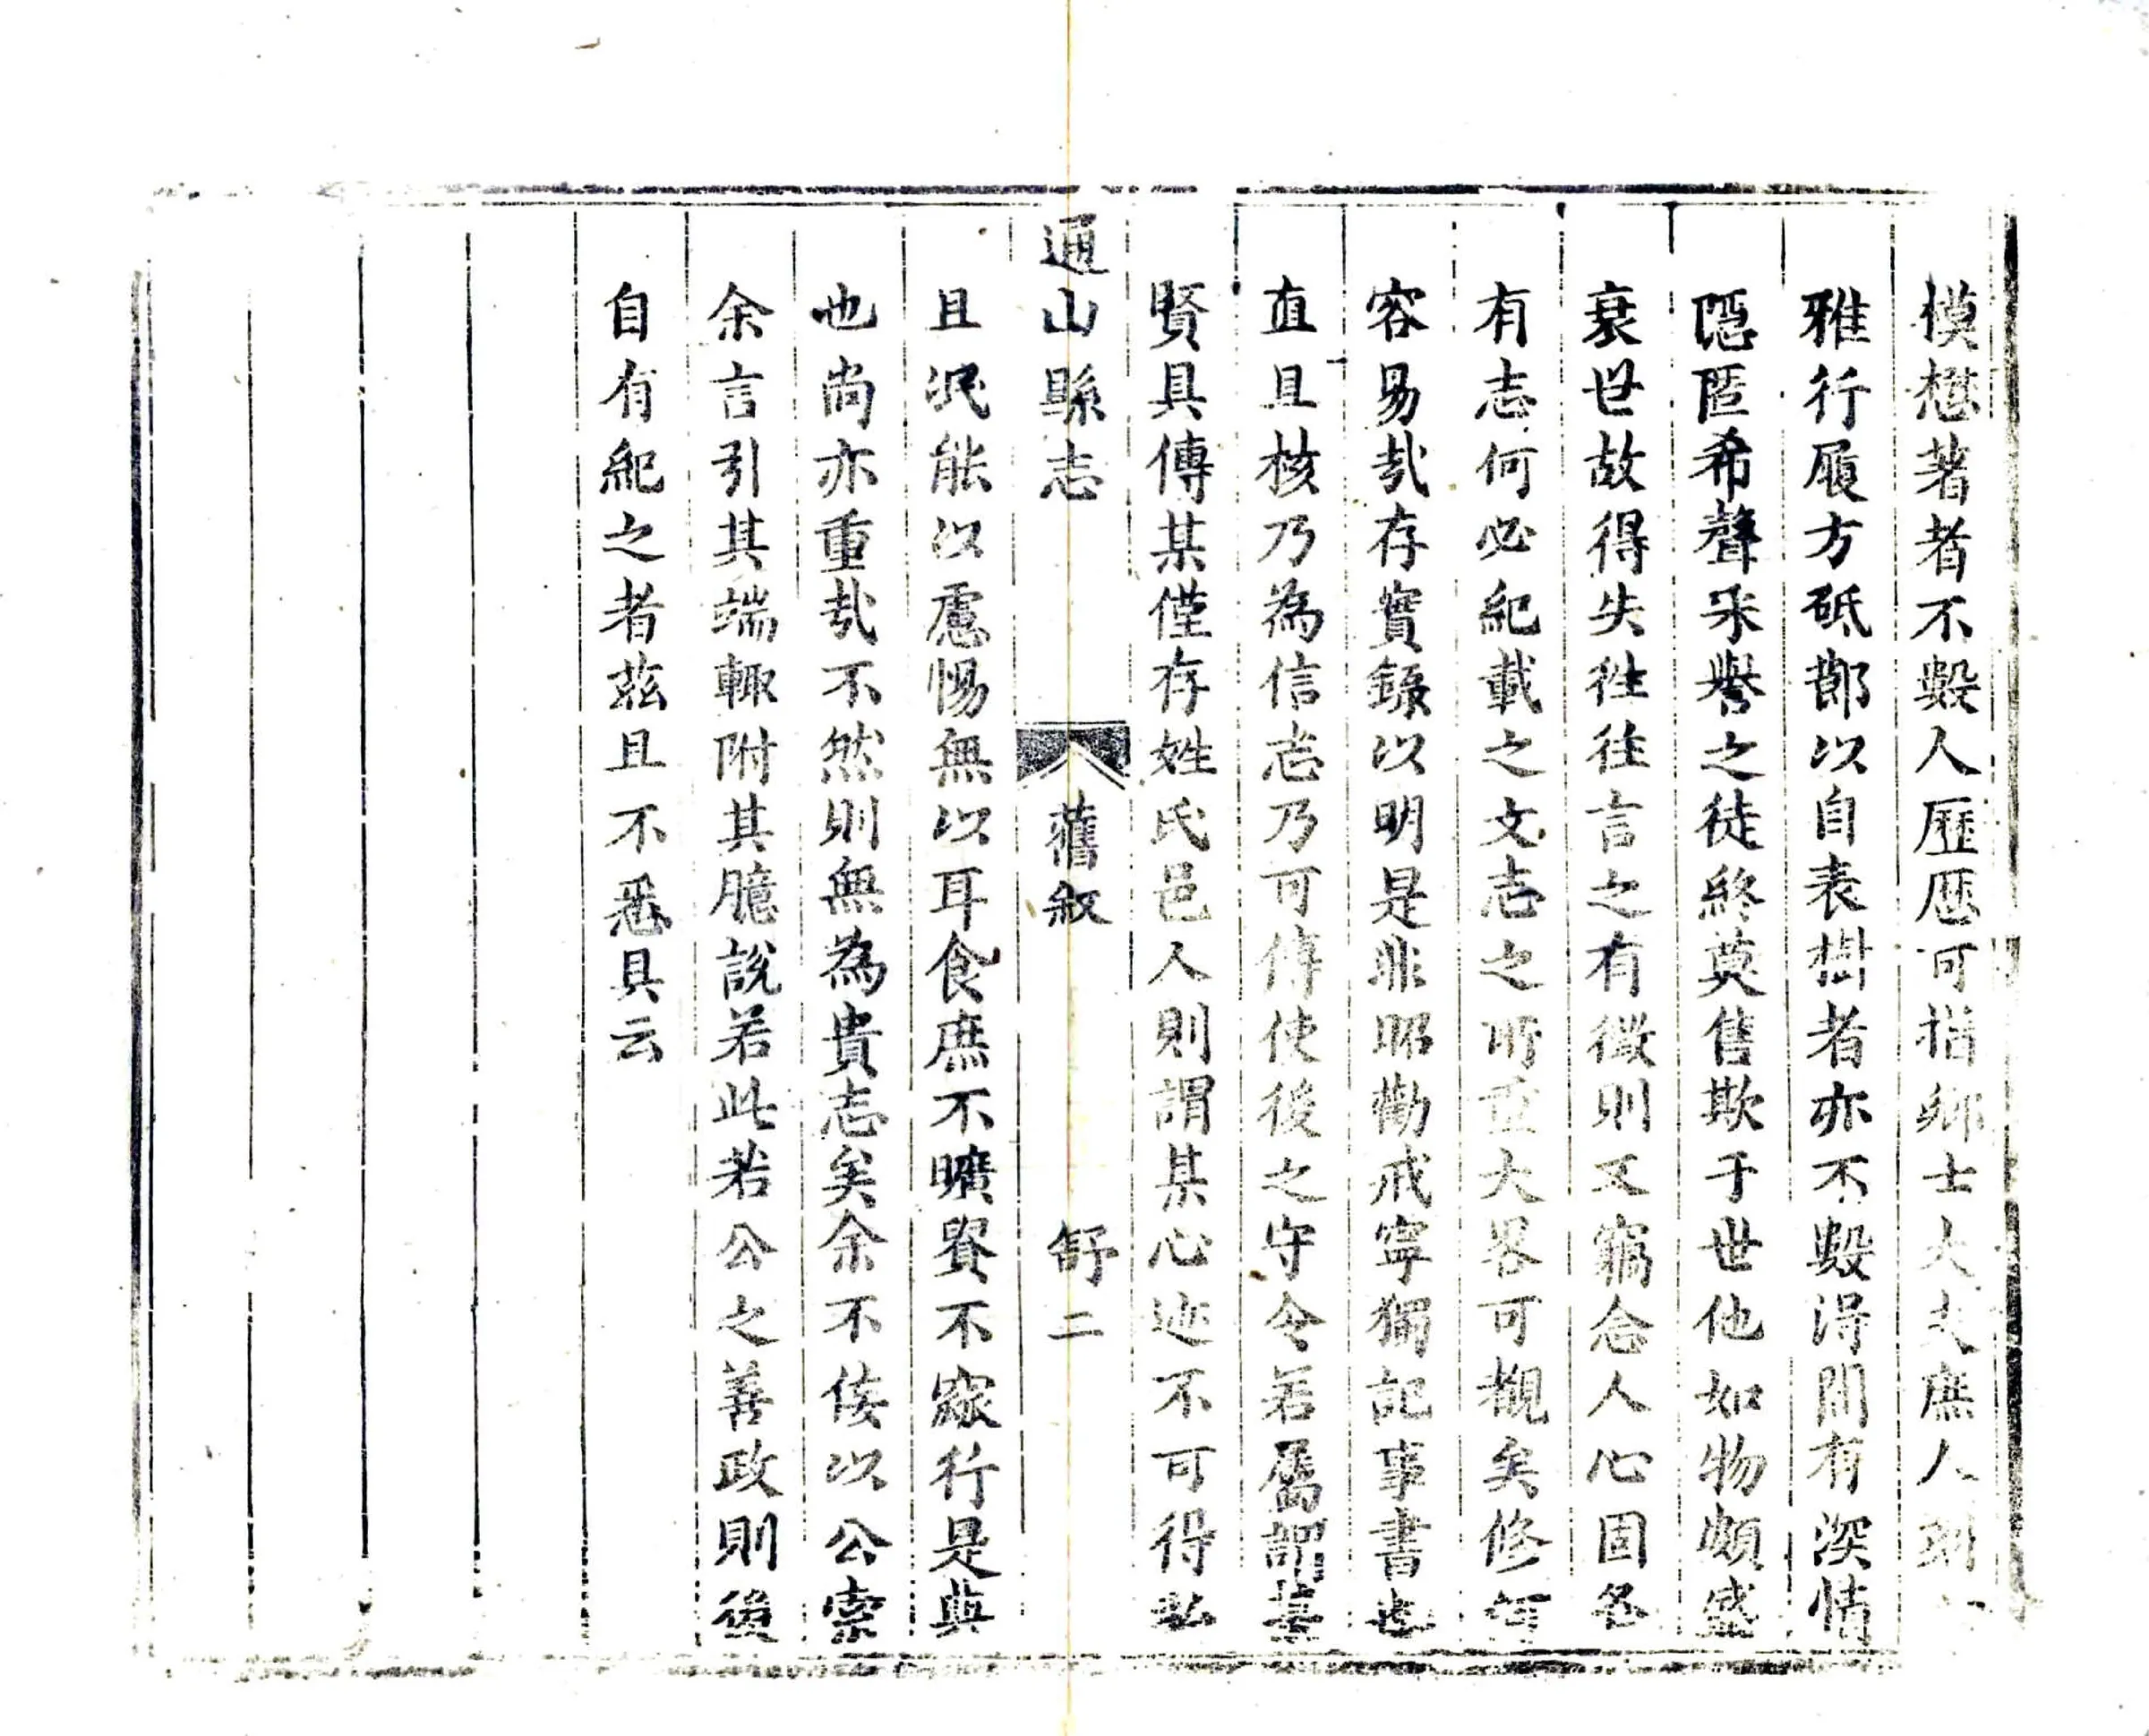 模想著者不數人歷歷可指鄉士大夫庶人則
雅行履方砥鄣以自表樹者亦不數得間有深情
隱匿希聲采譽之徒終莫售欺于世他如物頗盛
衰世故得失往往言之有徵則又竊念人心固各
有志何必紀載之文志之所重大畧可觀矣修何
容易哉存實錄以明是非昭勸戒寧獨記事書也
直且核乃為信志乃可傳使後之守令若屬謂某
賢具傳某僅存姓氏邑人則謂某心迹不可得私
通山縣志 舊叙 舒二
且泯能以慮惕無以耳食庶不曠貲不窳行是與
也尚亦重哉不然則無為貴志矣余不佞以公索
余言引其端輒附其臆說若此若公之善政則後
自有紀之者茲且不悉具云